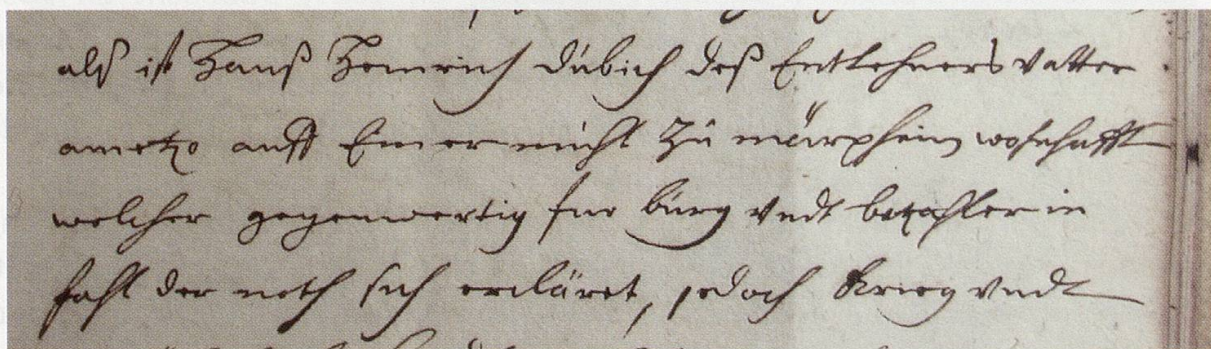 alß ist Hanß Henrich dübich deß Entlehners Vatter
ametzo auff Einer mühl zů mörpheim wohnhafft
welcher gegenwertig für bürg Vndt bezahler in
fahl der noth sich ercläret, jedoch Krieg Vndt